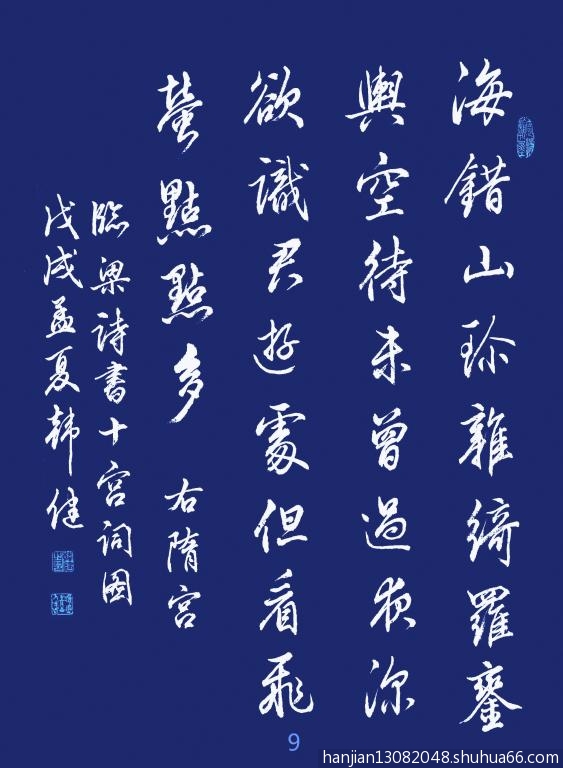 海錯山珍雜綺羅鑾
輿空待未曾過夜深
欲識君遊處但看飛
螢點點多 右隋宮
臨梁詩書十宮詞圖
戊戌孟夏韩健
9
hanjian13082048.shuhua66.com